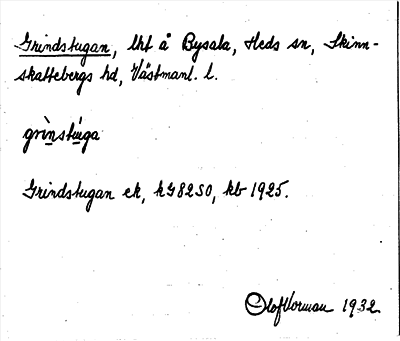 Grindstugan, lht å Bysala, Heds sn, Skinn-
skattebergs hd, Västmanl. l.
grìnstùga
Grindstugan ek, kG82SO, kb 1925.
Olof Vorman 1932